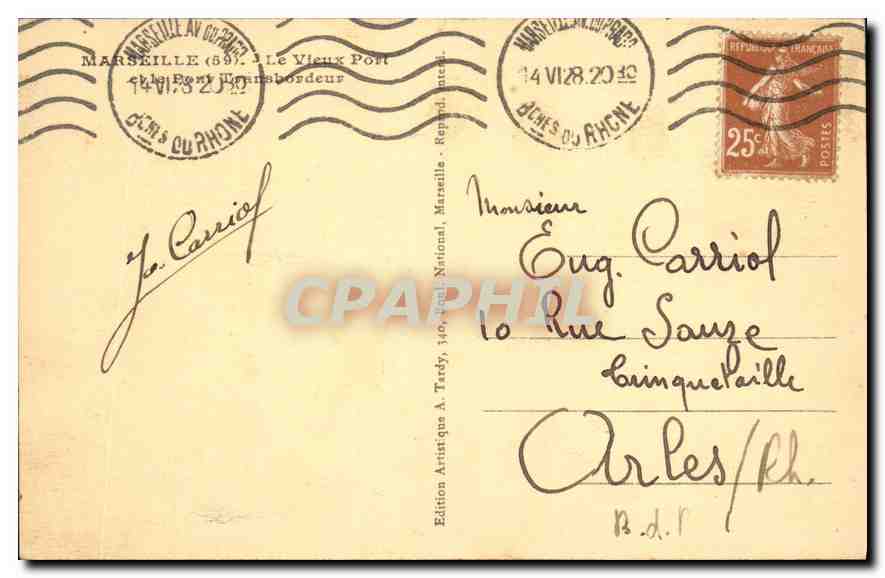 MARSEILLE (59). - Le Vieux Port
et le Pont Transbordeur
MARSEILLE AV. DU PRADO
14 VI 28. 20 30
BCHES DU RHONE
MARSEILLE AV. DU PRADO
14 VI 28. 20 30
BCHES DU RHONE
REPUBLIQUE FRANÇAISE
25c
POSTES
Jo. Carriol
Edition Artistique A. Tardy, 340, Boul. National, Marseille - Reprod. interd.
Monsieur
Eug. Carriol
10 Rue Sauze
Trinquetaille
Arles/Rh.
B.d.r
CPAPHIL